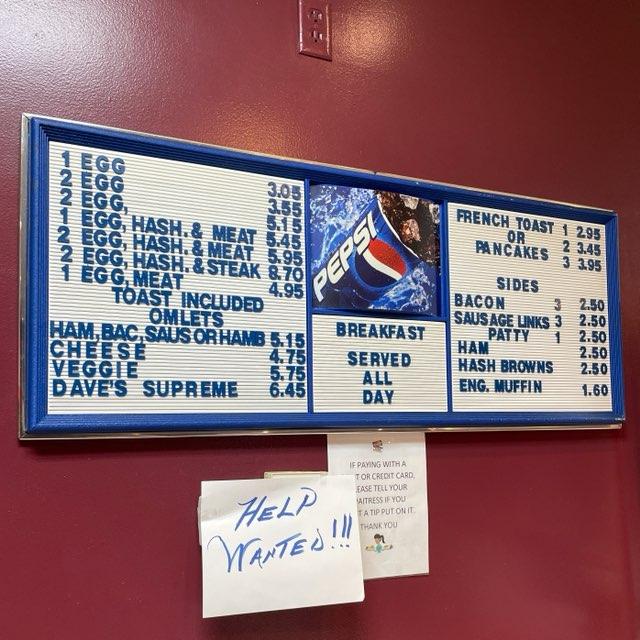 1 EGG 3.05
2 EGG 3.55
2 EGG, 5.15
1 EGG, HASH. & MEAT 5.45
2 EGG, HASH. & MEAT 5.95
2 EGG, HASH. & STEAK 8.70
1 EGG, MEAT 4.95
TOAST INCLUDED
OMLETS
HAM, BAC, SAUS OR HAMB 5.15
CHEESE 4.75
VEGGIE 5.75
DAVE'S SUPREME 6.45
PEPSI
BREAKFAST
SERVED
ALL
DAY
FRENCH TOAST 1 2.95
OR 2 3.45
PANCAKES 3 3.95
SIDES
BACON 3 2.50
SAUSAGE LINKS 3 2.50
PATTY 1 2.50
HAM 2.50
HASH BROWNS 2.50
ENG. MUFFIN 1.60
IF PAYING WITH A
OR CREDIT CARD,
TELL YOUR
IF YOU
A TIP PUT ON IT.
THANK YOU
HELP
WANTED!!!